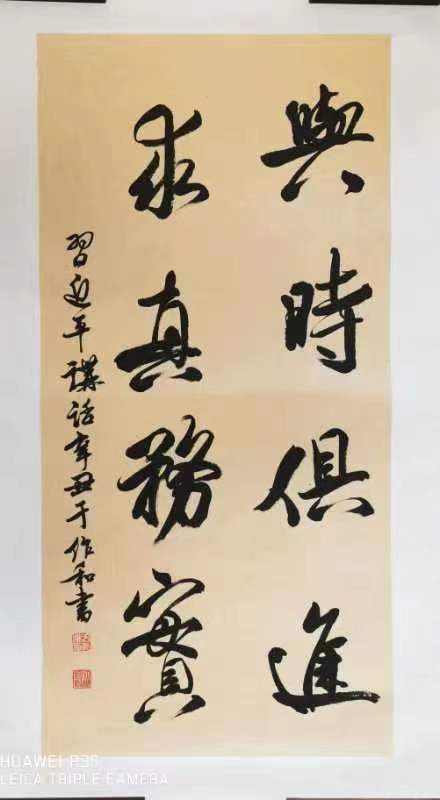 與時俱進
求真務實
習近平講話辛丑于作和書
HUAWEI P30
LEICA TRIPLE CAMERA